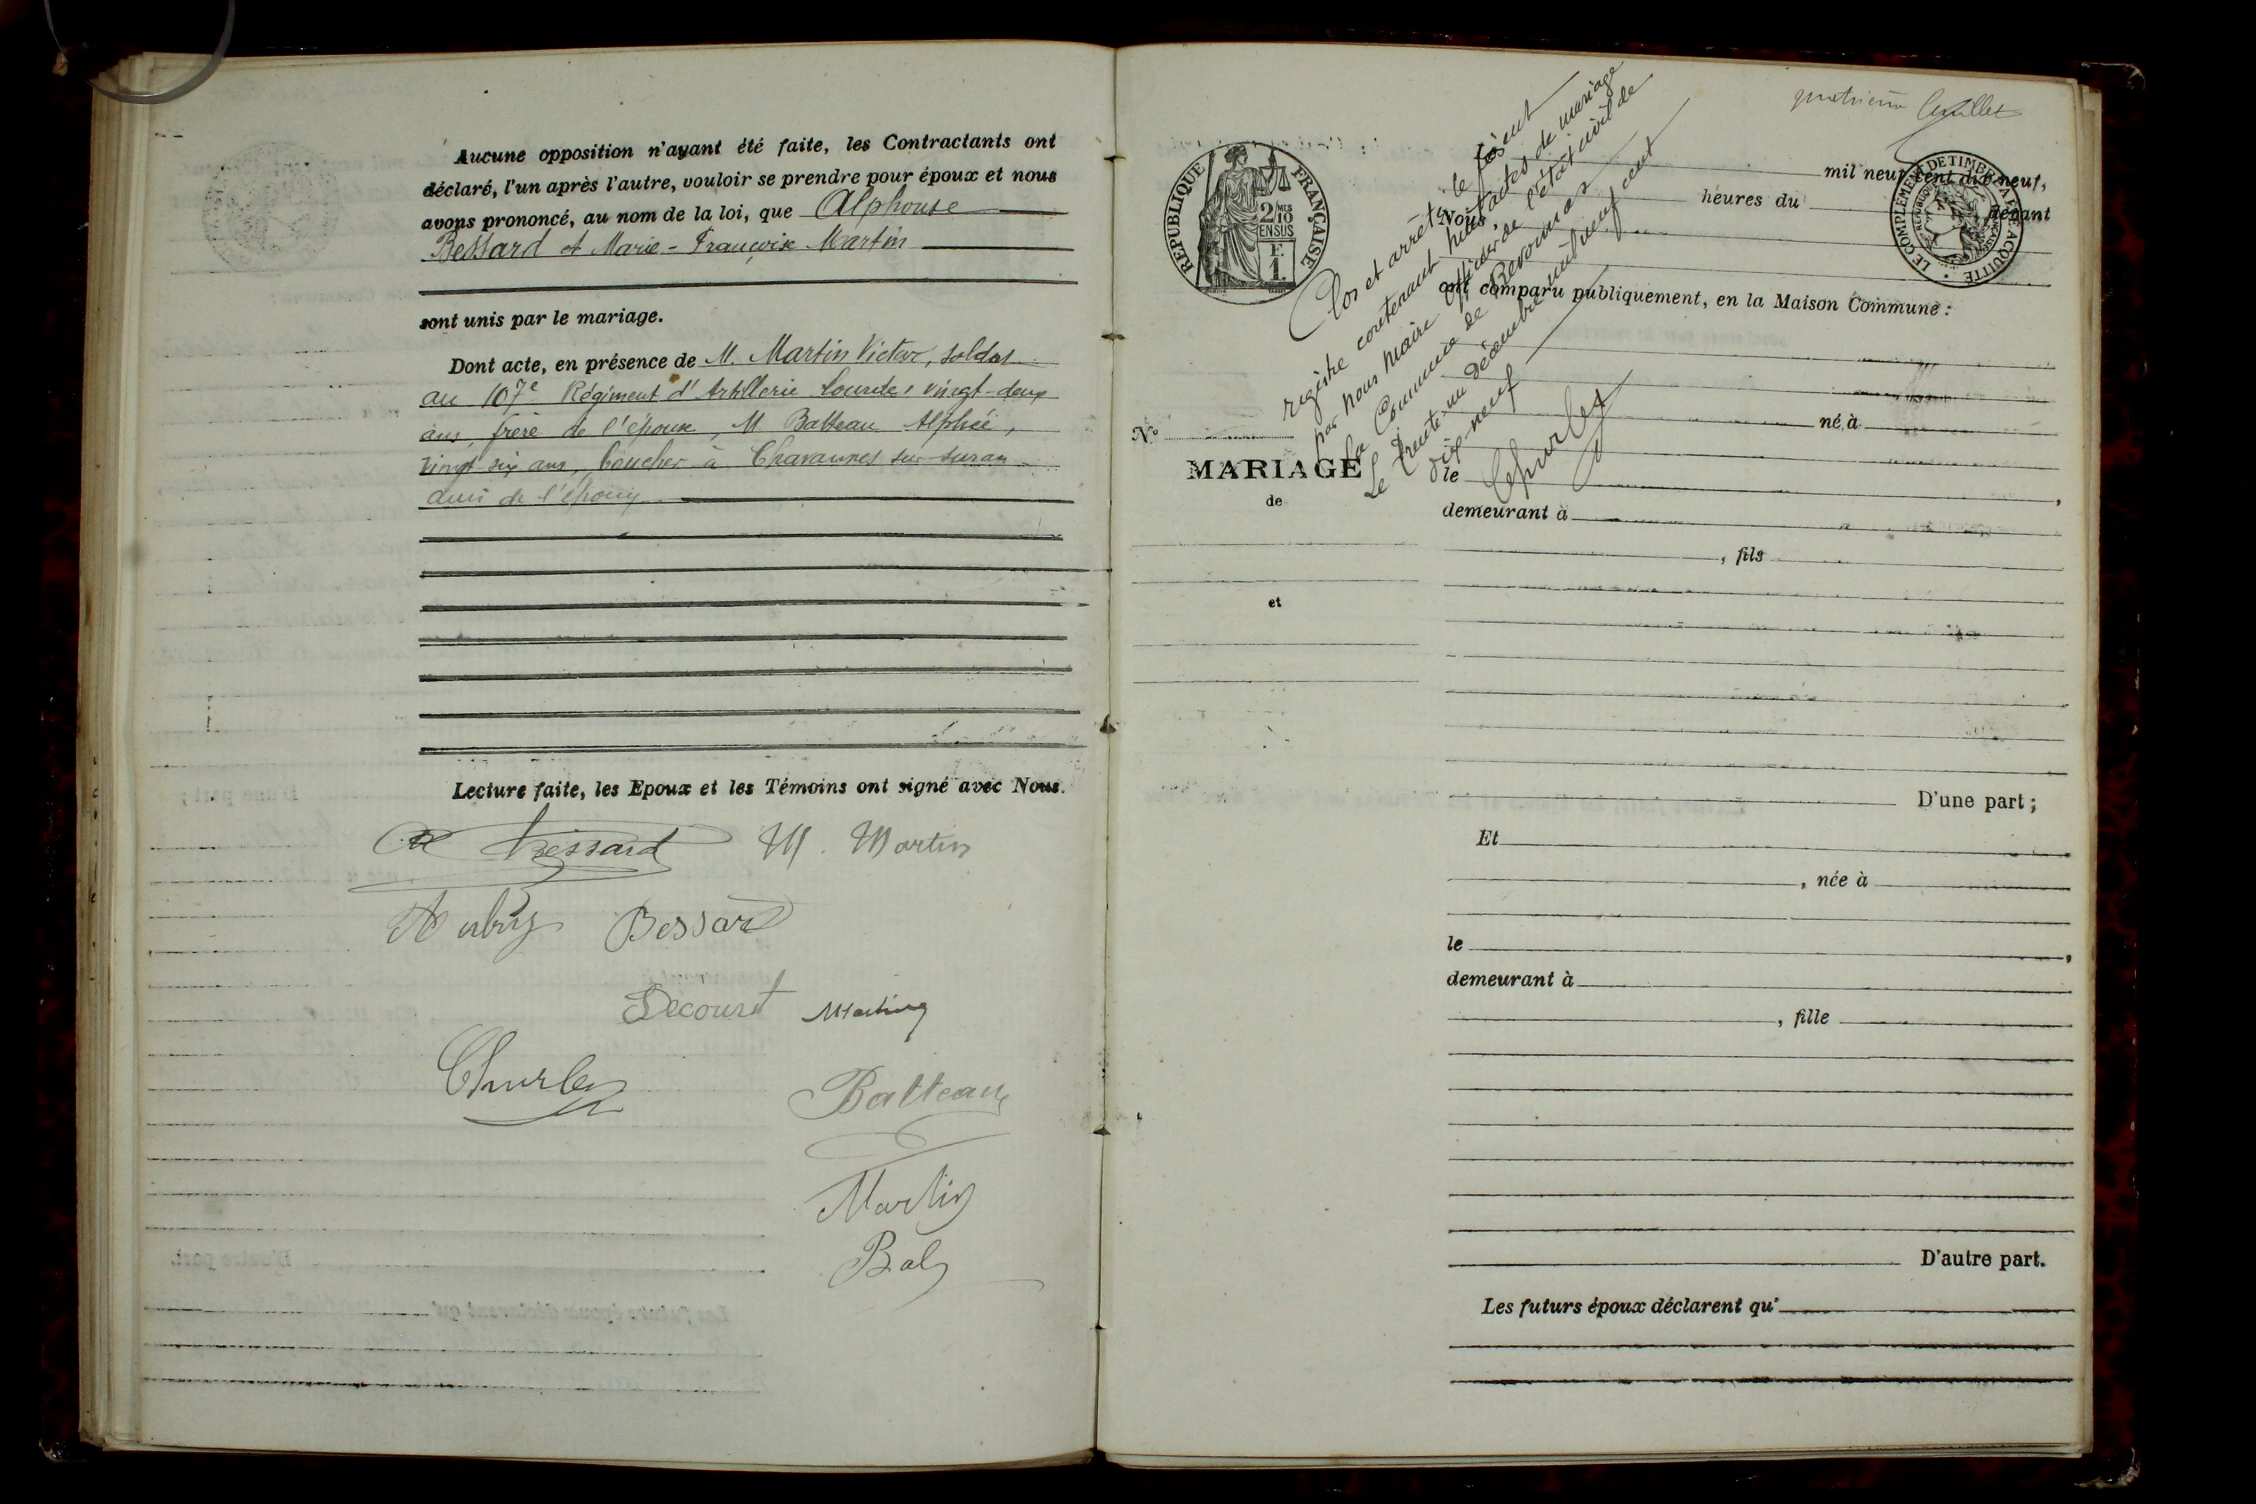 Aucune opposition n'ayant été faite, les Contractants ont
déclaré, l'un après l'autre, vouloir se prendre pour époux et nous
avons prononcé, au nom de la loi, que Alphonse
Bessard et Marie-Françoise Martin
sont unis par le mariage.
Dont acte, en présence de M. Martin Victor, soldat
au 107e Régiment d'Artillerie Lourde, vingt-deux
ans, frère de l'épouse, M. Batteau Alphée,
vingt six ans, boucher à Chavannes sur suran
ami de l'époux
Lecture faite, les Epoux et les Témoins ont signé avec Nous.
Bessard M. Martin
Aubry Bessard
Decourt Martin
Churlet
Batteau
Martin
Bal
quatrième feuillet
RÉPUBLIQUE FRANÇAISE
2/10 MES
EN SUS
F.
1.
LE COMPLÉMENT DE TIMBRE A ÉTÉ ACQUITTÉ
mil neuf cent dix-neuf,
heures du
devant
Nous
ont comparu publiquement, en la Maison Commune :
Clos et arrêté le présent
registre contenant huit actes de mariage
par nous maire officier de l'état civil de
la Commune de Revonnas
Le trente-un décembre mil neuf cent
dix-neuf
Churlet
No
MARIAGE
de
et
né à
le
demeurant à
, fils
D'une part ;
Et
, née à
le ,
demeurant à
, fille
D'autre part.
Les futurs époux déclarent qu'